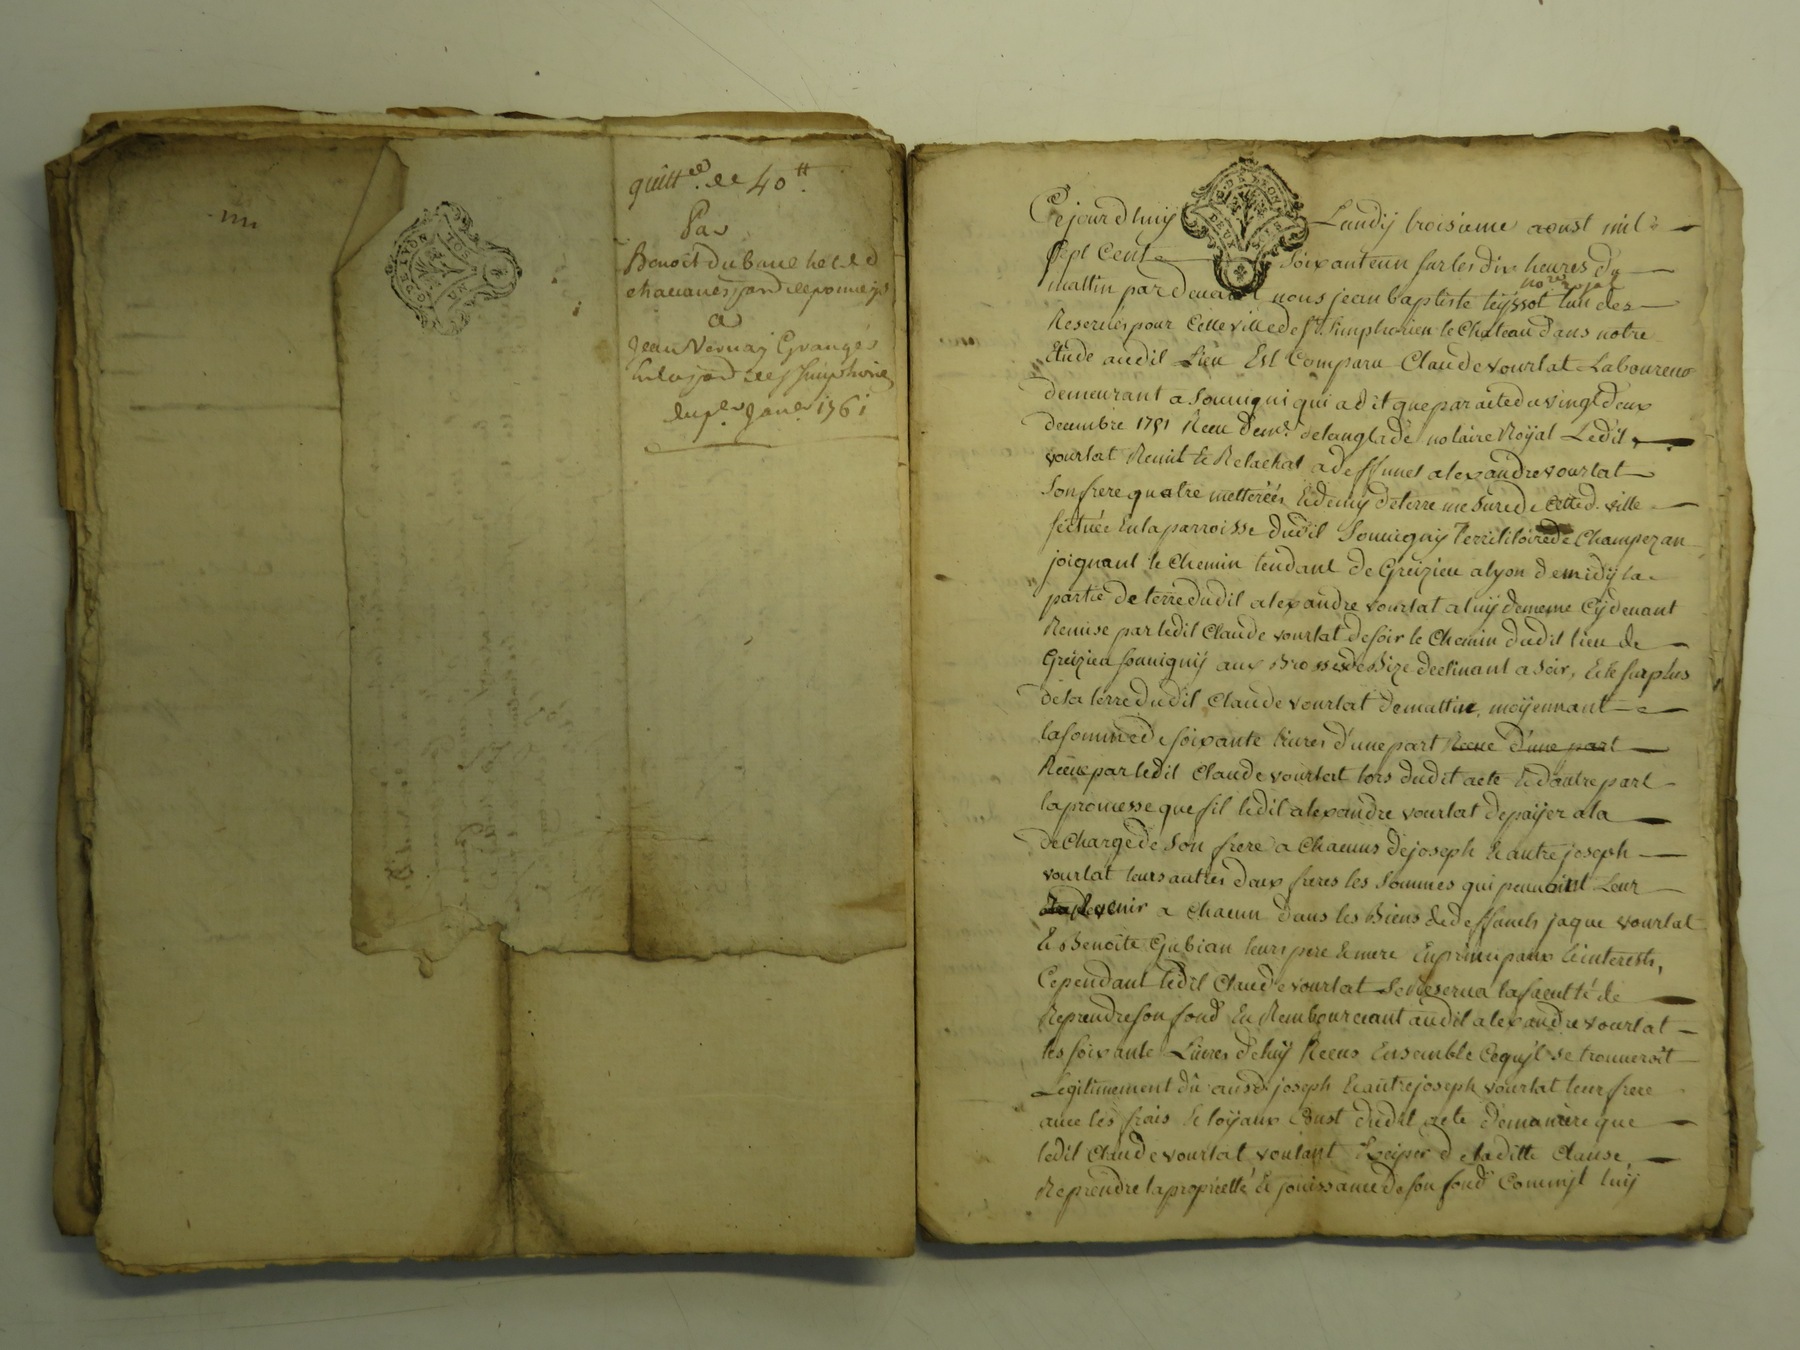 quitt.ce de 40 tt.
Par
Benoit
de pomeys
a
Jean Vernay Granger
du p.er Janv.er 1761
Cejourdhuy Lundy troisieme aoust mil
sept Cent soixanteun sur les dix heures du
mattin pardevant nous jean baptiste teyssot lun des no.res royaux
Reservés pour Cette ville de st. simphorien le Chateau dans notre
Etude audit Lieu Est Comparu Claude vourlat Laboureur
demeurant a Souvigni qui a dit que par acte du vingt deux
decembre 1751 Receu de me. delanglade notaire Royal Ledit
vourlat Remit et Relachat a deffunct alexandre vourlat
son frere quatre metterées et demy de terre mesure de Cetted. ville
scituée En la parroisse dudit Souvigny Territoire de Champezan
joignant le Chemin tendant de Greizieu a lyon de midy la
partie de terre dudit alexandre vourlat a luy de meme Cy devant
Remise par ledit Claude vourlat de soir le Chemin dudit lieu de
Greizieu souvigny aux Brosses de Bize declinant a soir, Et le surplus
de la terre dudit Claude vourlat de mattin, moyennant
la somme de soixante livres d'une part Receue d'une part
Receue par ledit Claude vourlat lors dudit acte Et d'autre part
la promesse que fit ledit alexandre vourlat de payer a la
décharge de son frere a Chacuns de joseph Et autre joseph
vourlat leurs autres deux freres les sommes qui pouvoint Leur
venir a Chacun dans les Biens de deffuncts jaque vourlat
Et Benoite Gubian leurs pere Et mere En principaux Et interests,
Cependant ledit Claude vourlat se Reserva la faculté de
Reprendre son fond En Rembourciant audit alexandre vourlat
les soixante Livres de luy Receus Ensemble Ce qu'il se trouveroit
Légitimement dû ausd. joseph Et autre joseph vourlat leur frere
avec les frais Et loyaux Coust dudit acte de maniere que
ledit Claude vourlat voulant de laditte Clause,
Reprendre la proprietté Et jouissance de son fond Commit luy